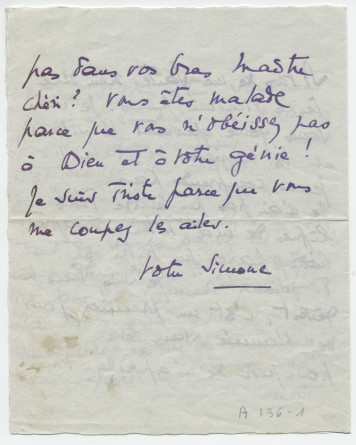 pas dans vos bras Maître
chéri ? vous êtes malade
parce que vous n'obéissez pas
à Dieu et à votre génie !
Je suis triste parce que vous
me coupez les ailes.
votre Simone
A 136-1